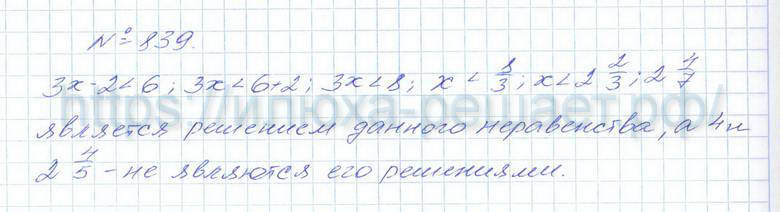 №839.
3x-2<6; 3x<6+2; 3x<8; x<8/3; x<2 2/3; 2 4/7
является решением данного неравенства, а 4 и
2 4/5 - не являются его решениями.
https://илюха-решает.рф/